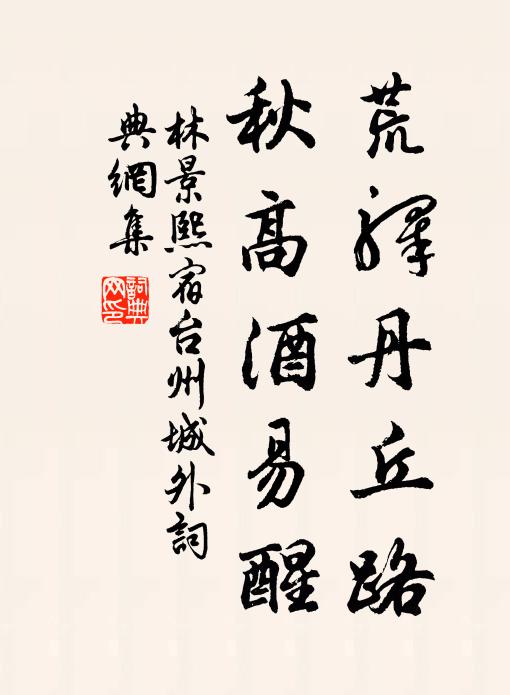 荒驛丹丘路
秋高酒易醒
林景熙宿台州城外詞
典網集
詞典
网印